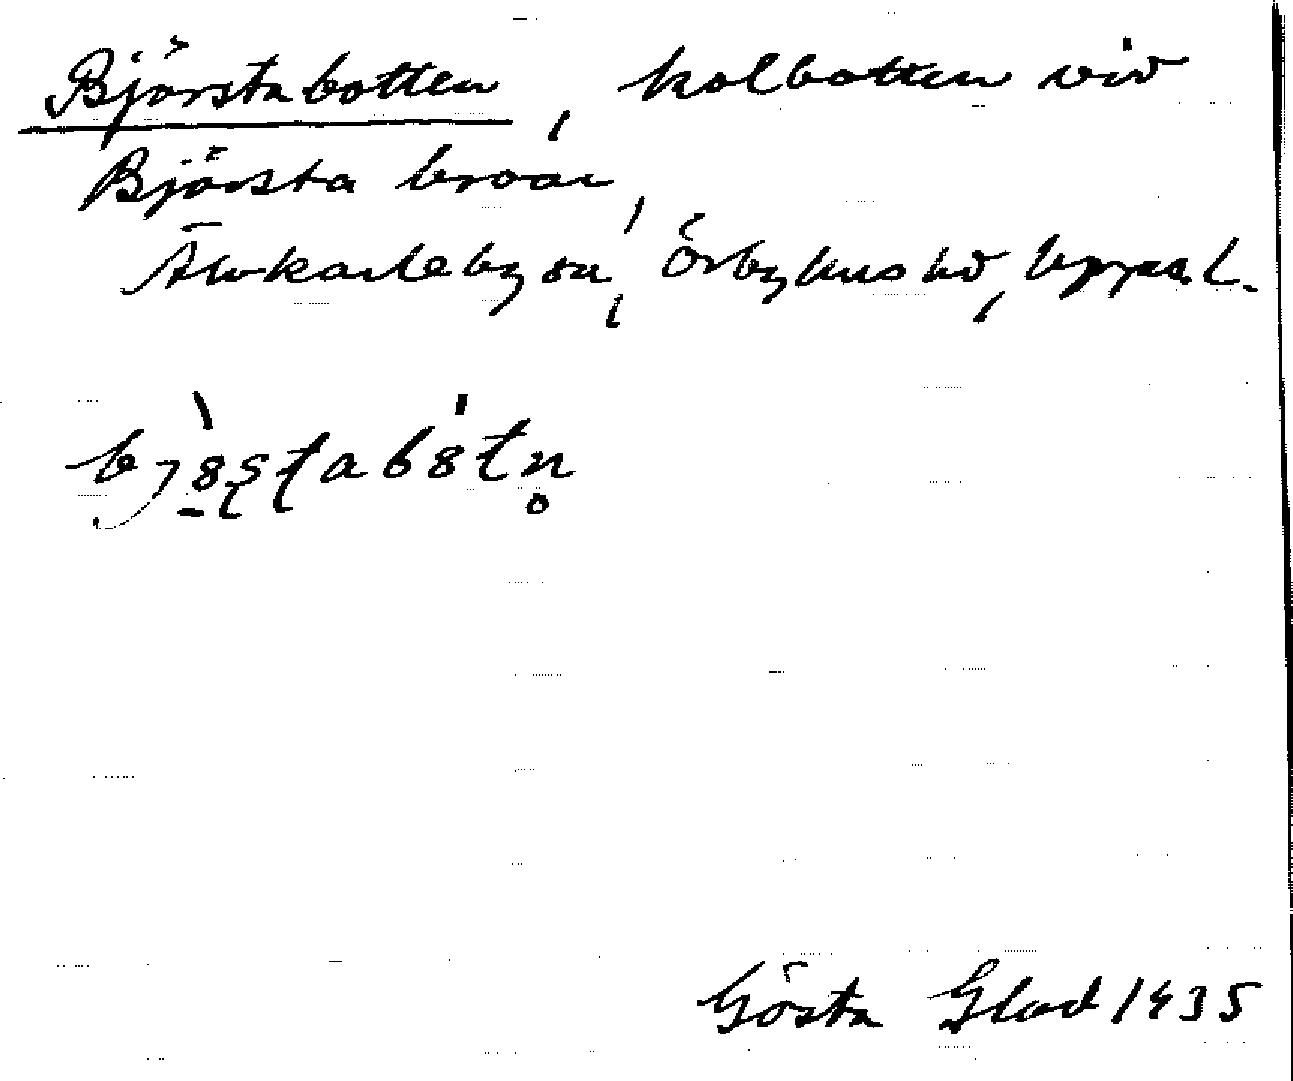 Björstabotten, kolbotten vid
Björsta broar,
Älvkarleby sn, Örbyhus hd, Upps. l.
Gösta Glad 1935